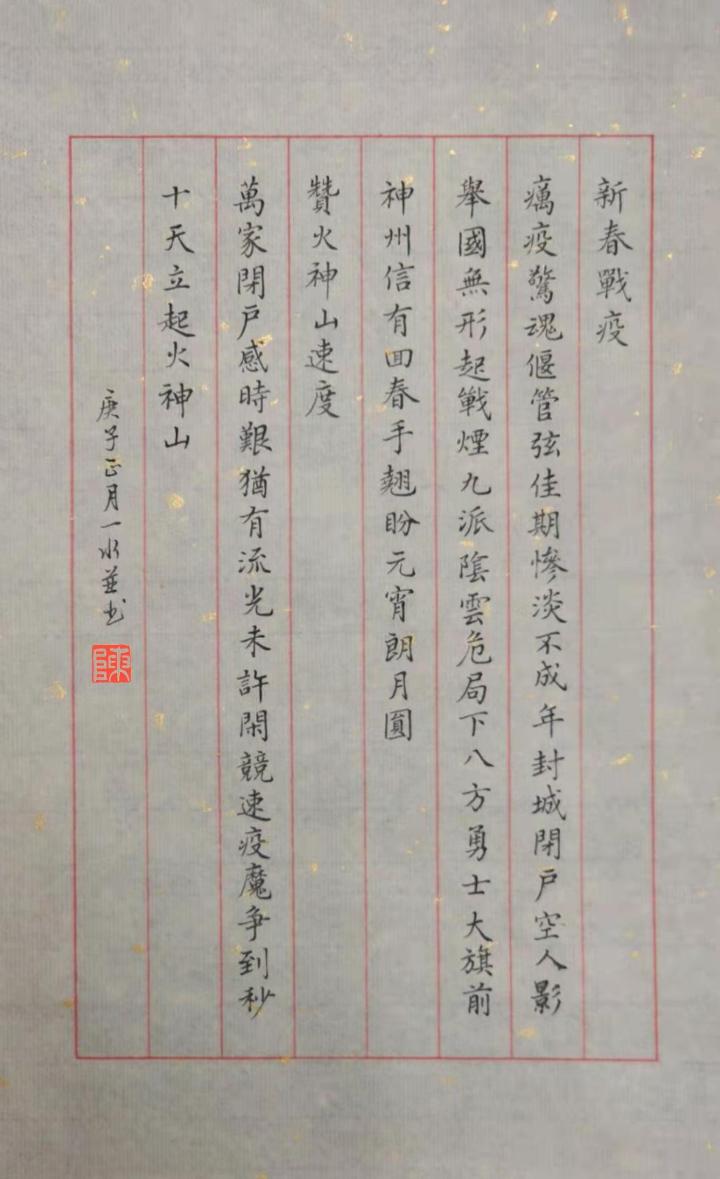 新春戰疫
癘疫驚魂偃管弦佳期慘淡不成年封城閉戶空人影
舉國無形起戰煙九派陰雲危局下八方勇士大旗前
神州信有回春手翹盼元宵朗月圓
贊火神山速度
萬家閉戶感時艱猶有流光未許閑競速疫魔爭到秒
十天立起火神山
庚子正月一水並书
陳